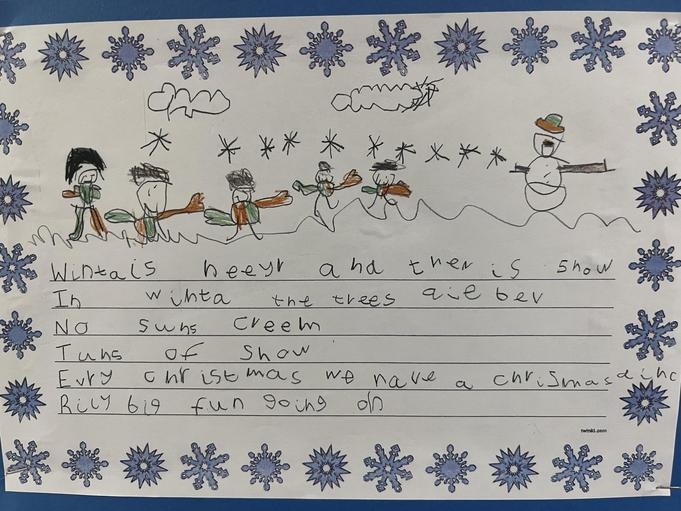 Wintais heeyr and ther is snow
In winta the trees are ber
No suns creem
Tuns of snow
Evry christmas we have a chrismas dinc
Rily big fun going on
twinkl.com